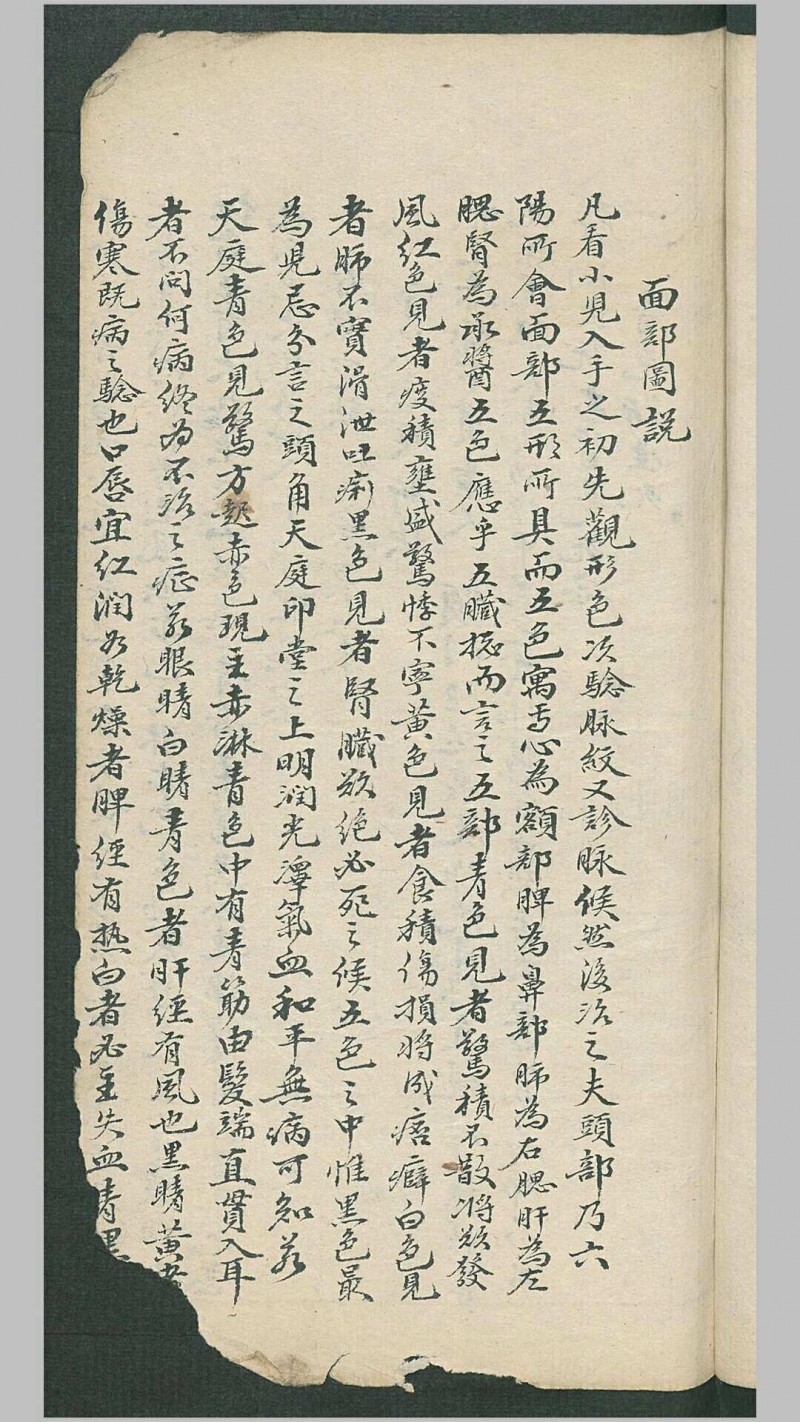 面部圖說
凡看小児入手之初先觀形色次驗脉紋又診脉候然後治之夫頭部乃六
陽所會面部五形所具而五色寓焉心為額部脾為鼻部肺為右腮肝為左
腮腎為承醬五色應乎五臟捴而言之五部青色見者驚積不散將欲發
風紅色見者痰積壅盛驚悸不寧黃色見者食積傷損將成痞癖白色見
者肺不實滑泄吐痢黑色見者腎臟欲絕必死之候五色之中惟黑色最
為児忌分言之頭角天庭印堂之上明潤光澤氣血和平無病可知若
天庭青色見驚方起赤色現主赤淋青色中有青筋由髮端直貫入耳
者不问何病終为不治之症若眼睛白睛青色者肝經有風也黑睛黃者
傷寒既病之驗也口唇宜红潤如乾燥者脾經有热白者必主失血青黑